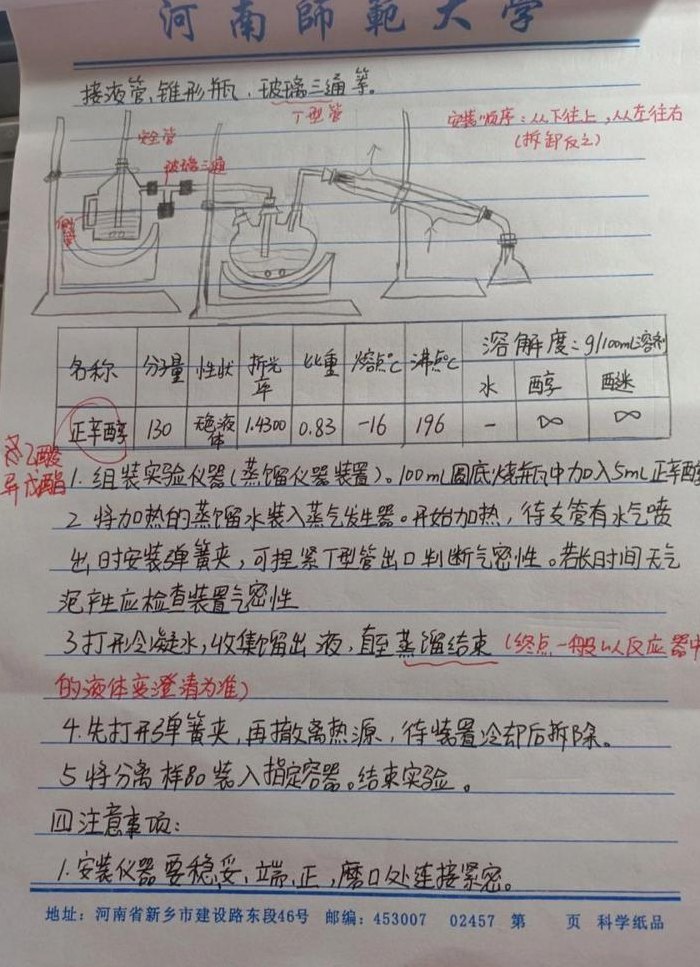 河南師範大学
接液管、锥形瓶、玻璃三通等。
T型管
安装顺序：从下往上，从左往右
(拆卸反之)
安全管
玻璃三通
名称 分子量 性状 折光率 比重 熔点℃ 沸点℃ 溶解度：g/100mL溶剂
水 醇 醚
正辛醇 130 液体 1.4300 0.83 -16 196 - ∞ ∞
乙酸异戊酯
1. 组装实验仪器(蒸馏仪器装置)。100mL圆底烧瓶中加入5mL正辛醇
2 将加热的蒸馏水装入蒸气发生器。开始加热，待支管有水气喷
出时安装弹簧夹，可捏紧T型管出口判断气密性。若长时间无气
泡产生应检查装置气密性
3打开冷凝水，收集馏出液，直至蒸馏结束(终点一般以反应器中
的液体变澄清为准)
4.先打开弹簧夹，再撤离热源，待装置冷却后拆除。
5 将分离样品装入指定容器。结束实验。
四注意事项：
1.安装仪器要稳妥、端、正，磨口处连接紧密。
地址：河南省新乡市建设路东段46号 邮编：453007 02457 第 页 科学纸品